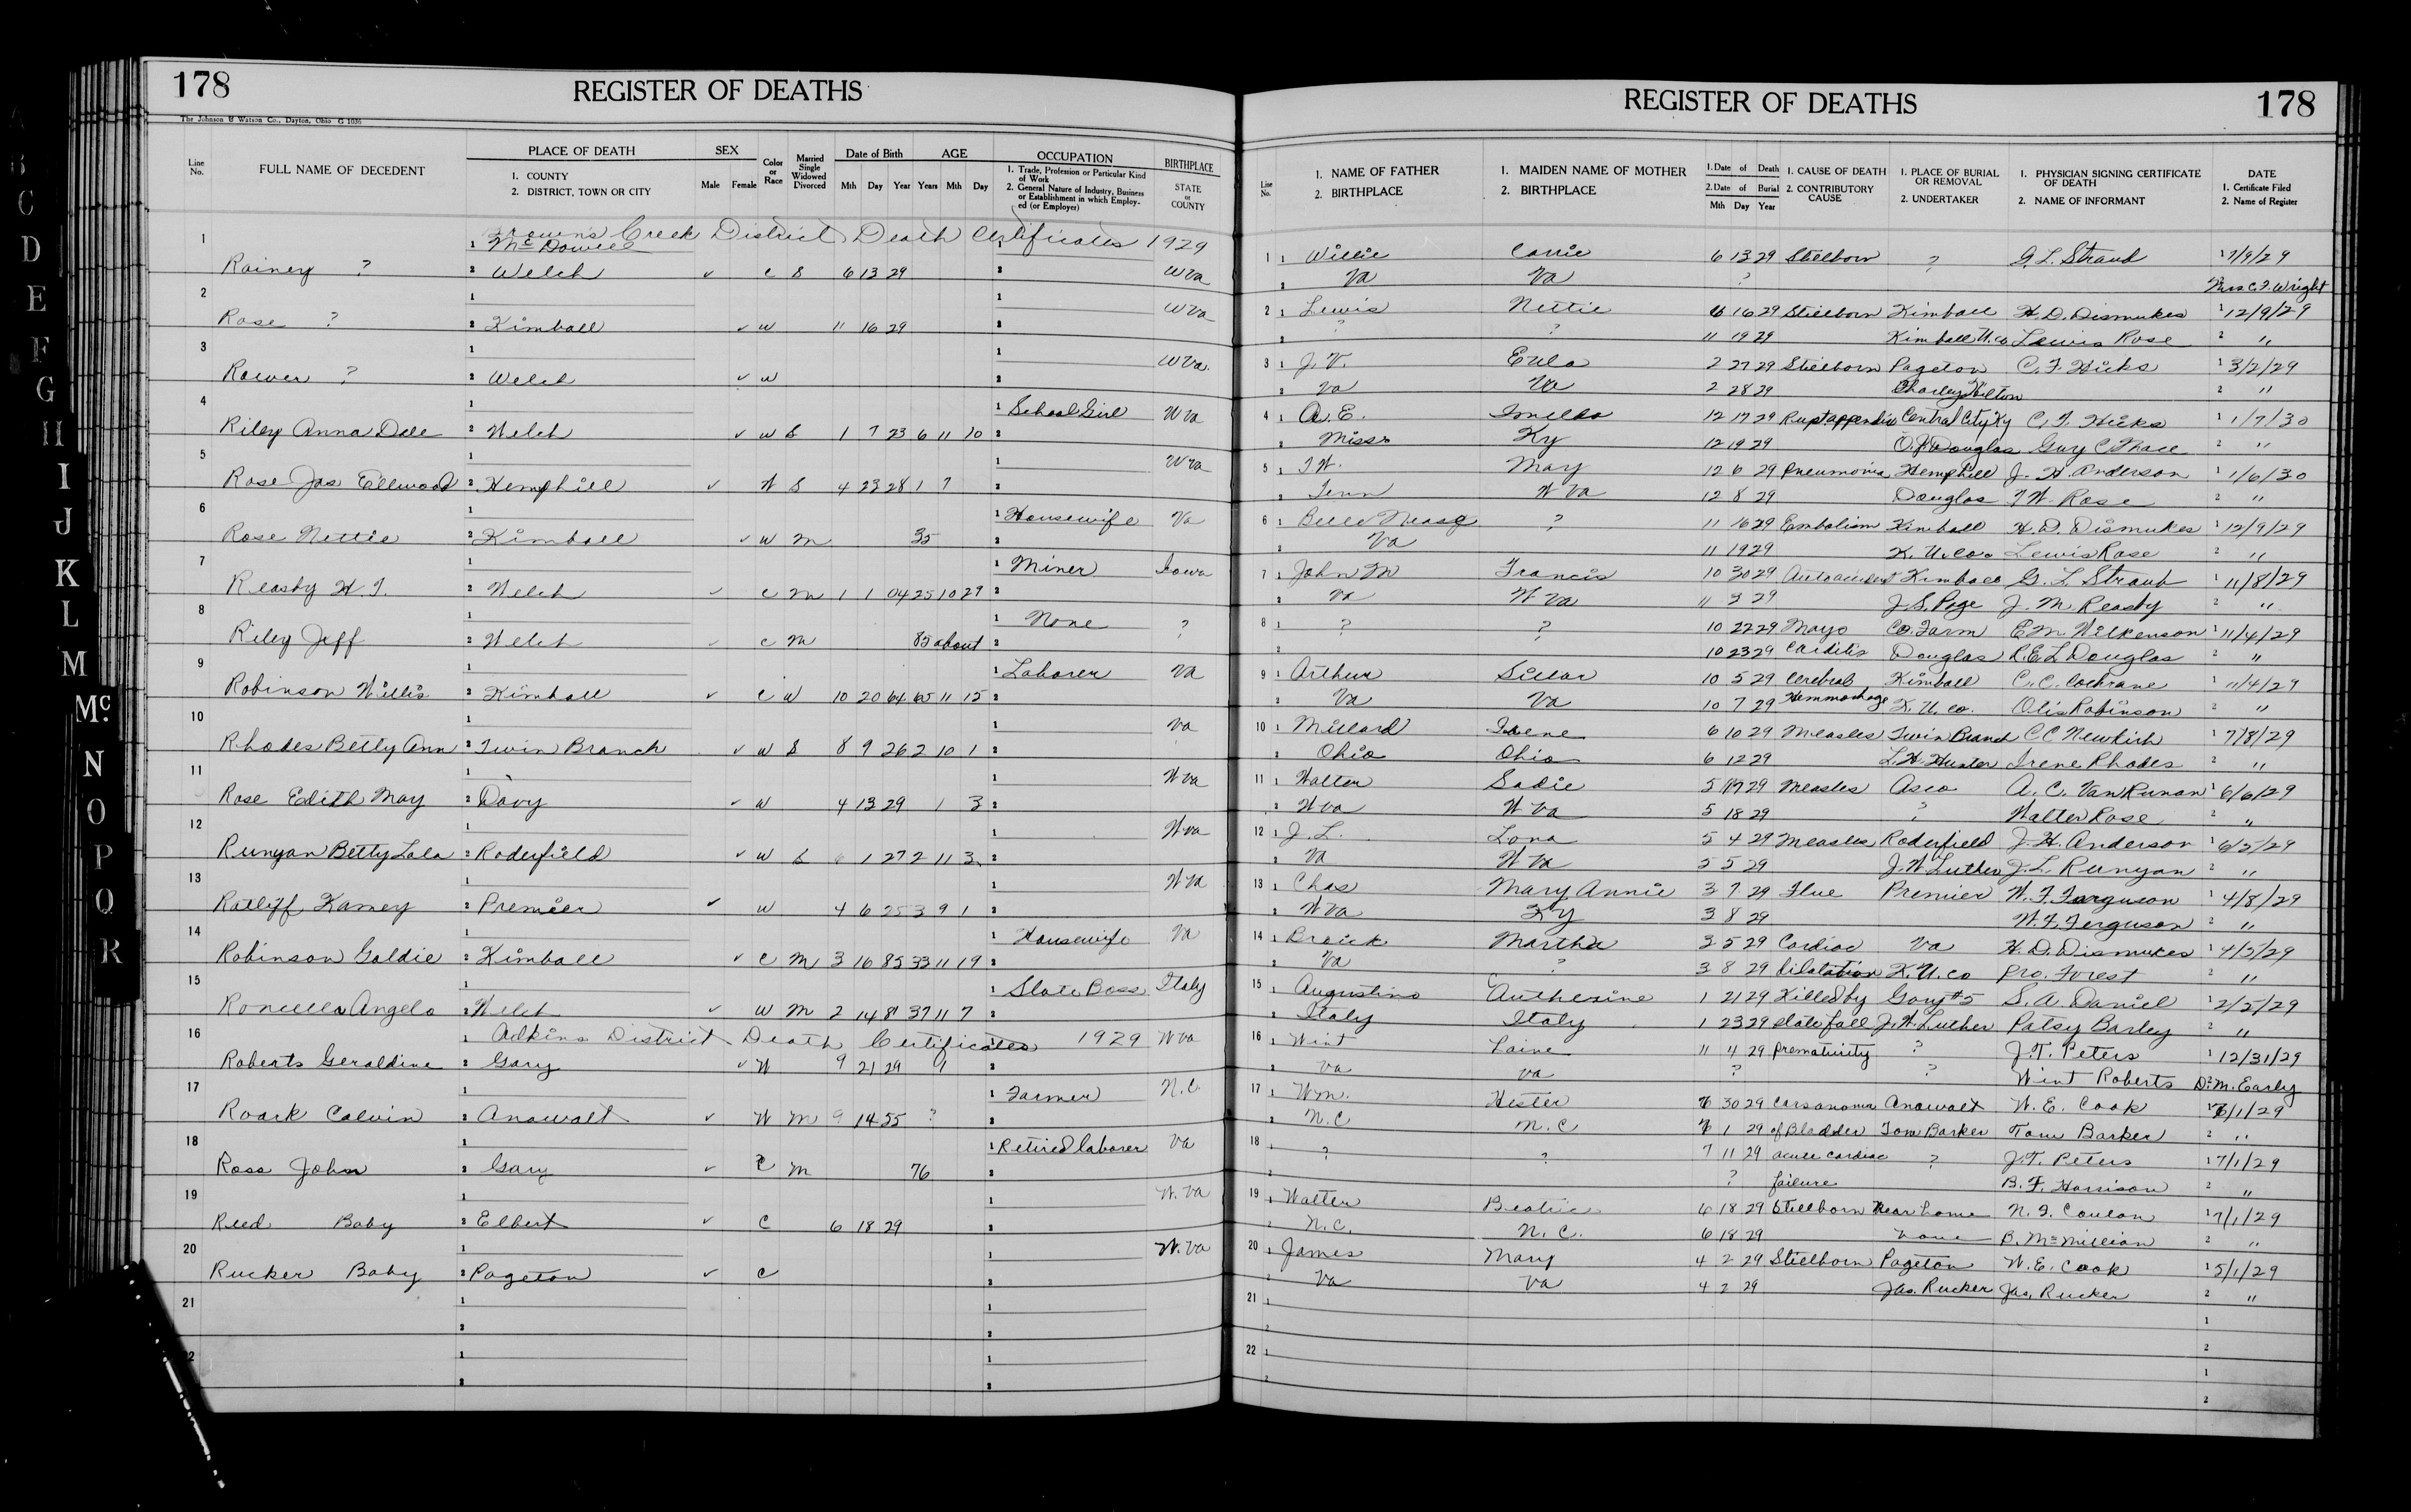 178 REGISTER OF DEATHS
The Johnson & Watson Co., Dayton, Ohio G 1036
Line No. FULL NAME OF DECEDENT PLACE OF DEATH 1. COUNTY 2. DISTRICT, TOWN OR CITY SEX Male Female Color or Race Married Single Widowed Divorced Date of Birth Mth Day Year AGE Years Mth Day OCCUPATION 1. Trade, Profession or Particular Kind of Work 2. General Nature of Industry, Business or Establishment in which Employed (or Employer) BIRTHPLACE STATE or COUNTY
Browns Creek District Death Certificates 1929
1 1 McDowell 1
Rainey ? 2 Welch ✓ C S 6 13 29 2 W Va
2 1 1 W Va
Rose ? 2 Kimball ✓ W 11 16 29 2
3 1 1 W Va
Rower ? 2 Welch ✓ W 2
4 1 1 School Girl W Va
Riley Anna Dele 2 Welch ✓ W S 1 7 23 6 11 10 2
5 1 1 W Va
Rose Jas Ellwood 2 Hemphill ✓ W S 4 23 28 1 7 2
6 1 1 Housewife Va
Rose Nettie 2 Kimball ✓ W M 35 2
7 1 1 Miner Iowa
Reasby H. T. 2 Welch ✓ C M 1 1 04 25 10 29 2
8 1 1 None ?
Riley Jeff 2 Welch ✓ C M 85 about 2
9 1 1 Laborer Va
Robinson Willis 2 Kimball ✓ C W 10 20 64 65 11 15 2
10 1 1 Va
Rhodes Betty Ann 2 Twin Branch ✓ W S 8 9 26 2 10 1 2
11 1 1 W Va
Rose Edith May 2 Davy ✓ W 4 13 29 1 3 2
12 1 1 W Va
Runyan Betty Lala 2 Roderfield ✓ W S 1 27 2 11 3 2
13 1 1 W Va
Ratliff Kamey 2 Premier ✓ W 4 6 25 3 9 1 2
14 1 1 Housewife Va
Robinson Goldie 2 Kimball ✓ C M 3 16 85 33 11 19 2
15 1 1 Slate Boss Italy
Roncella Angelo 2 Welch ✓ W M 2 14 81 37 11 7 2
16 1 Adkins District Death Certificates 1929 W Va
Roberts Geraldine 2 Gary ✓ W 9 21 29 1 2
17 1 1 Farmer N.C.
Roark Calvin 2 Anawalt ✓ W M 9 14 55 ? 2
18 1 1 Retired laborer Va
Ross John 2 Gary ✓ C M 76 2
19 1 1 W. Va
Reed Baby 2 Elbert ✓ C 6 18 29 2
20 1 1 W. Va
Rucker Baby 2 Pageton ✓ C 2
21 1 1
2 2
22 1 1
2 2
REGISTER OF DEATHS 178
Line No. 1. NAME OF FATHER 2. BIRTHPLACE 1. MAIDEN NAME OF MOTHER 2. BIRTHPLACE 1. Date of Death 2. Date of Burial Mth Day Year 1. CAUSE OF DEATH 2. CONTRIBUTORY CAUSE 1. PLACE OF BURIAL OR REMOVAL 2. UNDERTAKER 1. PHYSICIAN SIGNING CERTIFICATE OF DEATH 2. NAME OF INFORMANT DATE 1. Certificate Filed 2. Name of Register
1 1 Willie Carrie 6 13 29 Stillborn ? G. L. Straub 1 7/9/29
2 Va Va ? Mrs C. F. Wright
2 1 Lewis Nettie 16 29 Stillborn Kimball H. D. Dismukes 1 12/9/29
2 ? ? 11 19 29 Kimball U. co Lewis Rose 2 "
3 1 J. V. Eula 2 27 29 Stillborn Pageton C. F. Hicks 1 3/2/29
2 Va Va 2 28 29 Charley Hilton 2 "
4 1 A. E. 12 17 29 Rupt. appendix Central City Ky C. F. Hicks 1 1/7/30
2 Miss Ky 12 19 29 Douglas Guy C. 2 "
5 1 T. W. May 12 6 29 Pneumonia Hemphill J. H. Anderson 1 1/6/30
2 Tenn W Va 12 8 29 Douglas T. W. Rose 2 "
6 1 Belle Nease ? 11 16 29 Embolism Kimball H. D. Dismukes 1 12/9/29
2 Va 11 19 29 K. U. Co. Lewis Rose 2 "
7 1 John M Francis 10 30 29 Auto accident Kimball G. L. Straub 1 11/8/29
2 Va W Va 11 3 29 J. S. Page J. M. Reasby 2 "
8 1 ? ? 10 22 29 Mayo Co. Farm E. M. Wilkenson 1 11/4/29
2 10 23 29 Carditis Douglas R. E. L. Douglas 2 "
9 1 Arthur Sillar 10 5 29 Cerebral Kimball C. C. Cochrane 1 11/4/29
2 Va Va 10 7 29 Hemmorhage K. U. co. Olis Robinson 2 "
10 1 Millard Irene 6 10 29 Measles Twin Branch C C Newkirk 1 7/8/29
2 Ohio Ohio 6 12 29 L. H. Hunter Irene Rhodes 2 "
11 1 Walter Sadie 5 29 Measles Asco A. C. Van Runan 1 6/6/29
2 W Va W Va 5 18 29 ? Walter Rose 2 "
12 1 J. L. Lona 5 4 29 Measles Roderfield J. H. Anderson 1 6/5/29
2 Va W Va 5 5 29 J. W. Luther J. L. Runyan 2 "
13 1 Chas Mary Annie 3 7 29 Flue Premier W. F. Ferguson 1 4/8/29
2 W Va Ky 3 8 29 W. F. Ferguson 2 "
14 1 Brack Martha 3 5 29 Cardiac Va H. D. Dismukes 1 4/5/29
2 Va ? 3 8 29 Dilatation K. U. co Pro. Forest 2 "
15 1 Augustino Autherine 1 21 29 Killed by Gary #5 S. A. Daniel 1 2/5/29
2 Italy Italy 1 23 29 slate fall J. W. Luther Patsy Barley 2 "
16 1 Wint Laine 11 4 29 Prematurity ? J. T. Peters 1 12/31/29
2 Va Va ? ? Wint Roberts D. M. Early
17 1 Wm. Hester 30 29 Carsanoma Anawalt W. E. Cook 1 /1/29
2 N.C N.C 1 29 of Bladder Tom Barker Tom Barker 2 "
18 1 ? ? 7 11 29 acute cardiac ? J. T. Peters 1 7/1/29
2 ? failure B. F. Harrison 2 "
19 1 Walter Beatrice 6 18 29 Stillborn Near home N. F. Coulon 1 7/1/29
2 N.C. N.C. 6 18 29 None B. McMillian 2 "
20 1 James Mary 4 2 29 Stillborn Pageton W. E. Cook 1 5/1/29
2 Va Va 4 2 29 Jas. Rucker Jas. Rucker 2 "
21 1 1
2 2
22 1 1
2 2
B
C
D
E
F
G
H
I
J
K
L
M
Mc
N
O
P
Q
R